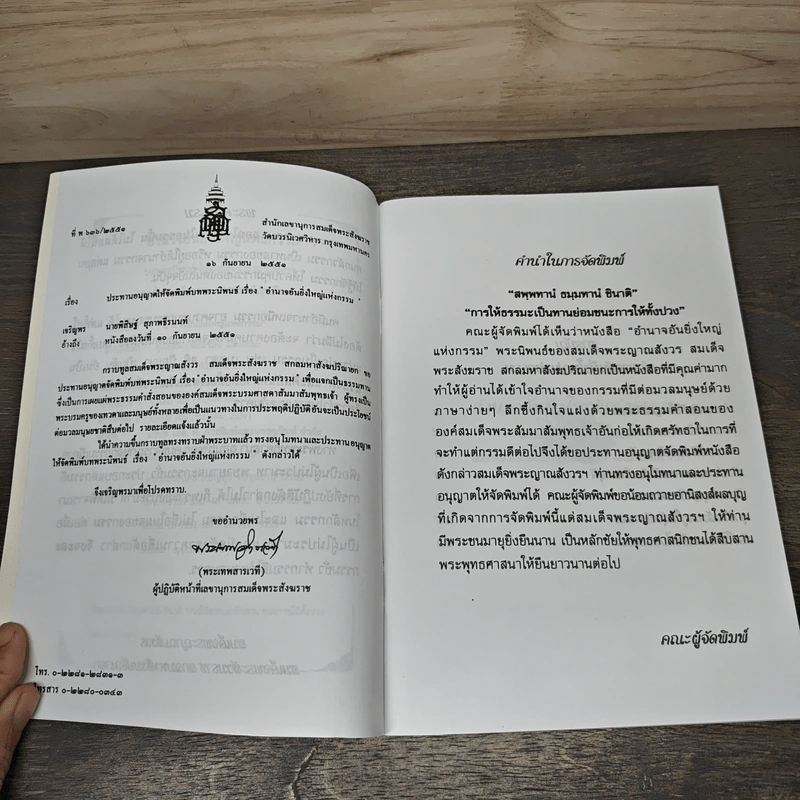 ที่ พ ๖๓๖/๒๕๕๑
สำนักเลขานุการสมเด็จพระสังฆราช
วัดบวรนิเวศวิหาร กรุงเทพมหานคร
๑๖ กันยายน ๒๕๕๑
เรื่อง ประทานอนุญาตให้จัดพิมพ์บทพระนิพนธ์ เรื่อง " อำนาจอันยิ่งใหญ่แห่งกรรม "
เจริญพร นายพิสิษฐ์ สุภาพธีรนนท์
อ้างถึง หนังสือลงวันที่ ๑๐ กันยายน ๒๕๕๑
กราบทูลสมเด็จพระญาณสังวร สมเด็จพระสังฆราช สกลมหาสังฆปริณายก ขอ
ประทานอนุญาตจัดพิมพ์บทพระนิพนธ์ เรื่อง " อำนาจอันยิ่งใหญ่แห่งกรรม " เพื่อแจกเป็นธรรมทาน
ซึ่งเป็นการเผยแผ่พระธรรมคำสั่งสอนขององค์สมเด็จพระบรมศาสดาสัมมาสัมพุทธเจ้า ผู้ทรงเป็น
พระบรมครูของเทวดาและมนุษย์ทั้งหลายเพื่อเป็นแนวทางในการประพฤติปฏิบัติ อันจะเป็นประโยชน์
ต่อมวลมนุษยชาติสืบต่อไป รายละเอียดแจ้งแล้วนั้น
ได้นำความขึ้นกราบทูลทรงทราบฝ่าพระบาทแล้ว ทรงอนุโมทนาและประทานอนุญาต
ให้จัดพิมพ์บทพระนิพนธ์ เรื่อง " อำนาจอันยิ่งใหญ่แห่งกรรม " ดังกล่าวได้
จึงเจริญพรมาเพื่อโปรดทราบ.
ขออำนวยพร
(พระเทพสารเวที)
ผู้ปฏิบัติหน้าที่เลขานุการสมเด็จพระสังฆราช
โทร. ๐-๒๒๘๑-๒๘๓๑-๓
โทรสาร ๐-๒๒๘๐-๐๓๔๓
คำนำในการจัดพิมพ์
"สพฺพทานํ ธมฺมทานํ ชินาติ"
"การให้ธรรมะเป็นทานย่อมชนะการให้ทั้งปวง"
คณะผู้จัดพิมพ์ได้เห็นว่าหนังสือ "อำนาจอันยิ่งใหญ่
แห่งกรรม" พระนิพนธ์ของสมเด็จพระญาณสังวร สมเด็จ
พระสังฆราช สกลมหาสังฆปริณายกเป็นหนังสือที่มีคุณค่ามาก
ทำให้ผู้อ่านได้เข้าใจอำนาจของกรรมที่มีต่อมวลมนุษย์ด้วย
ภาษาง่ายๆ ลึกซึ้งกินใจแฝงด้วยพระธรรมคำสอนของ
องค์สมเด็จพระสัมมาสัมพุทธเจ้าอันก่อให้เกิดศรัทธาในการที่
จะทำแต่กรรมดีต่อไปจึงได้ขอประทานอนุญาตจัดพิมพ์หนังสือ
ดังกล่าวสมเด็จพระญาณสังวรฯ ท่านทรงอนุโมทนาและประทาน
อนุญาตให้จัดพิมพ์ได้ คณะผู้จัดพิมพ์ขอน้อมถวายอานิสงส์ผลบุญ
ที่เกิดจากการจัดพิมพ์นี้แด่สมเด็จพระญาณสังวรฯ ให้ท่าน
มีพระชนมายุยิ่งยืนนาน เป็นหลักชัยให้พุทธศาสนิกชนได้สืบสาน
พระพุทธศาสนาให้ยืนยาวนานต่อไป
คณะผู้จัดพิมพ์